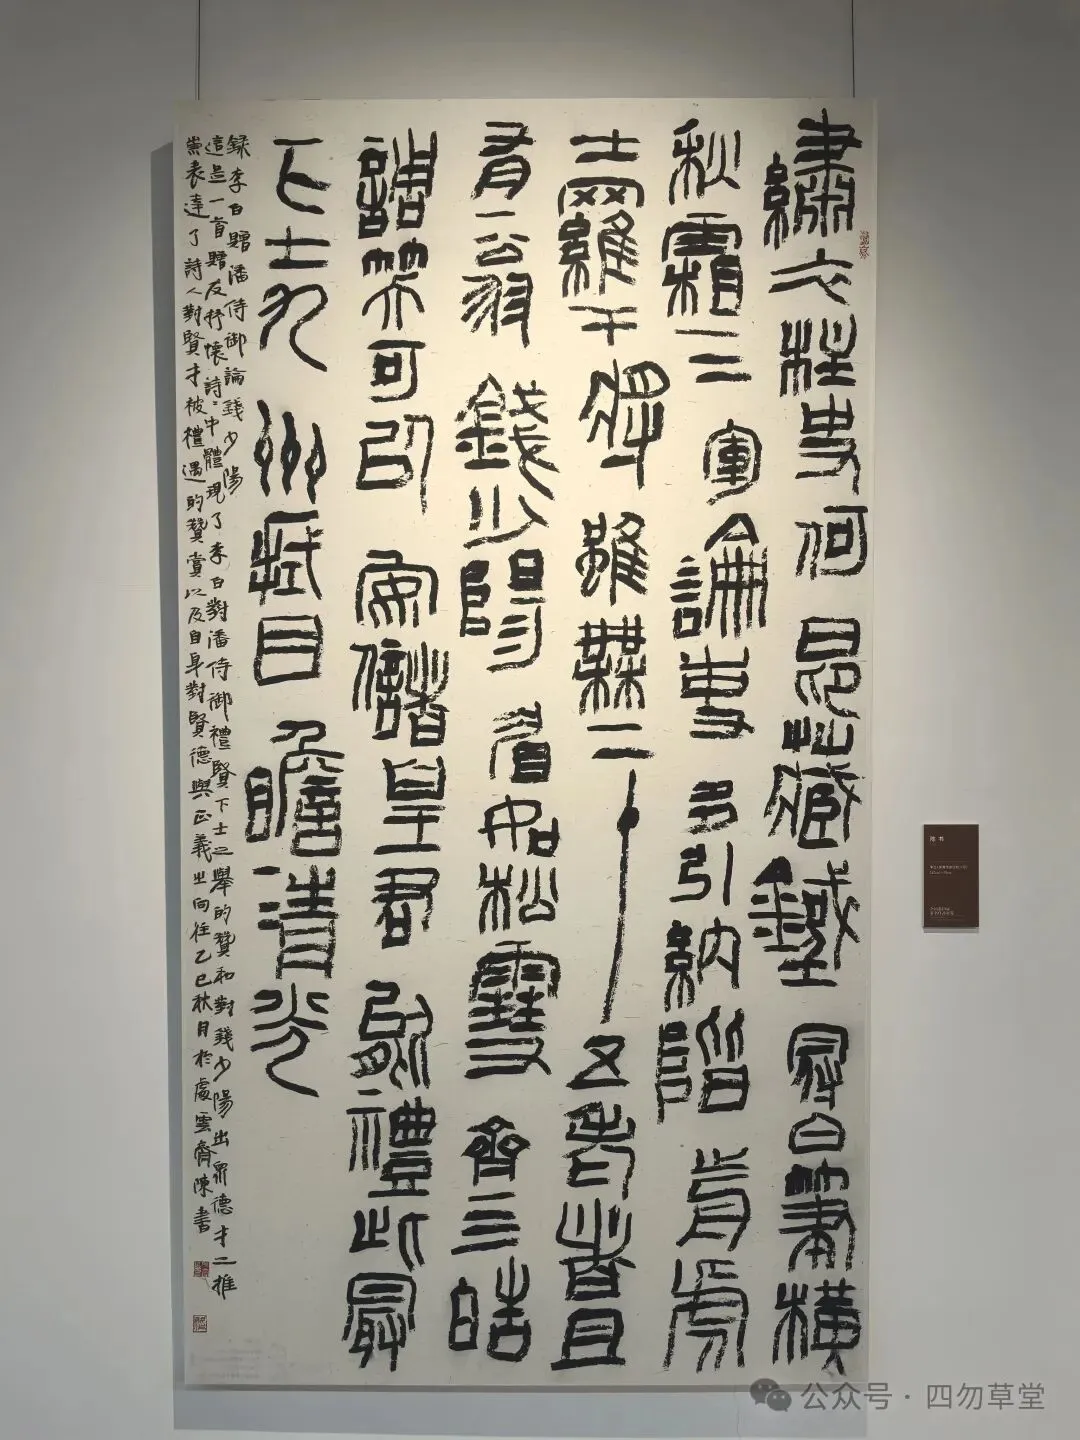 繡衣柱史何昂藏鐵冠白筆橫
秋霜三軍論事多引納階前虎
士羅干將雖無二十五老者且
有一翁錢少陽眉如松雪齊亖皓
調笑可以安儲皇君能禮此最
下士九州拭目瞻清光
錄李白贈潘侍御論錢少陽
這是一首贈友抒懷詩〻中體現了李白對潘侍御禮賢下士之舉的贊和對錢少陽出眾德才之推
崇表達了詩人對賢才被禮遇的贊賞以及自身對賢德與正義之向往乙巳秋月於處雲齋陳書
公众号·四勿草堂